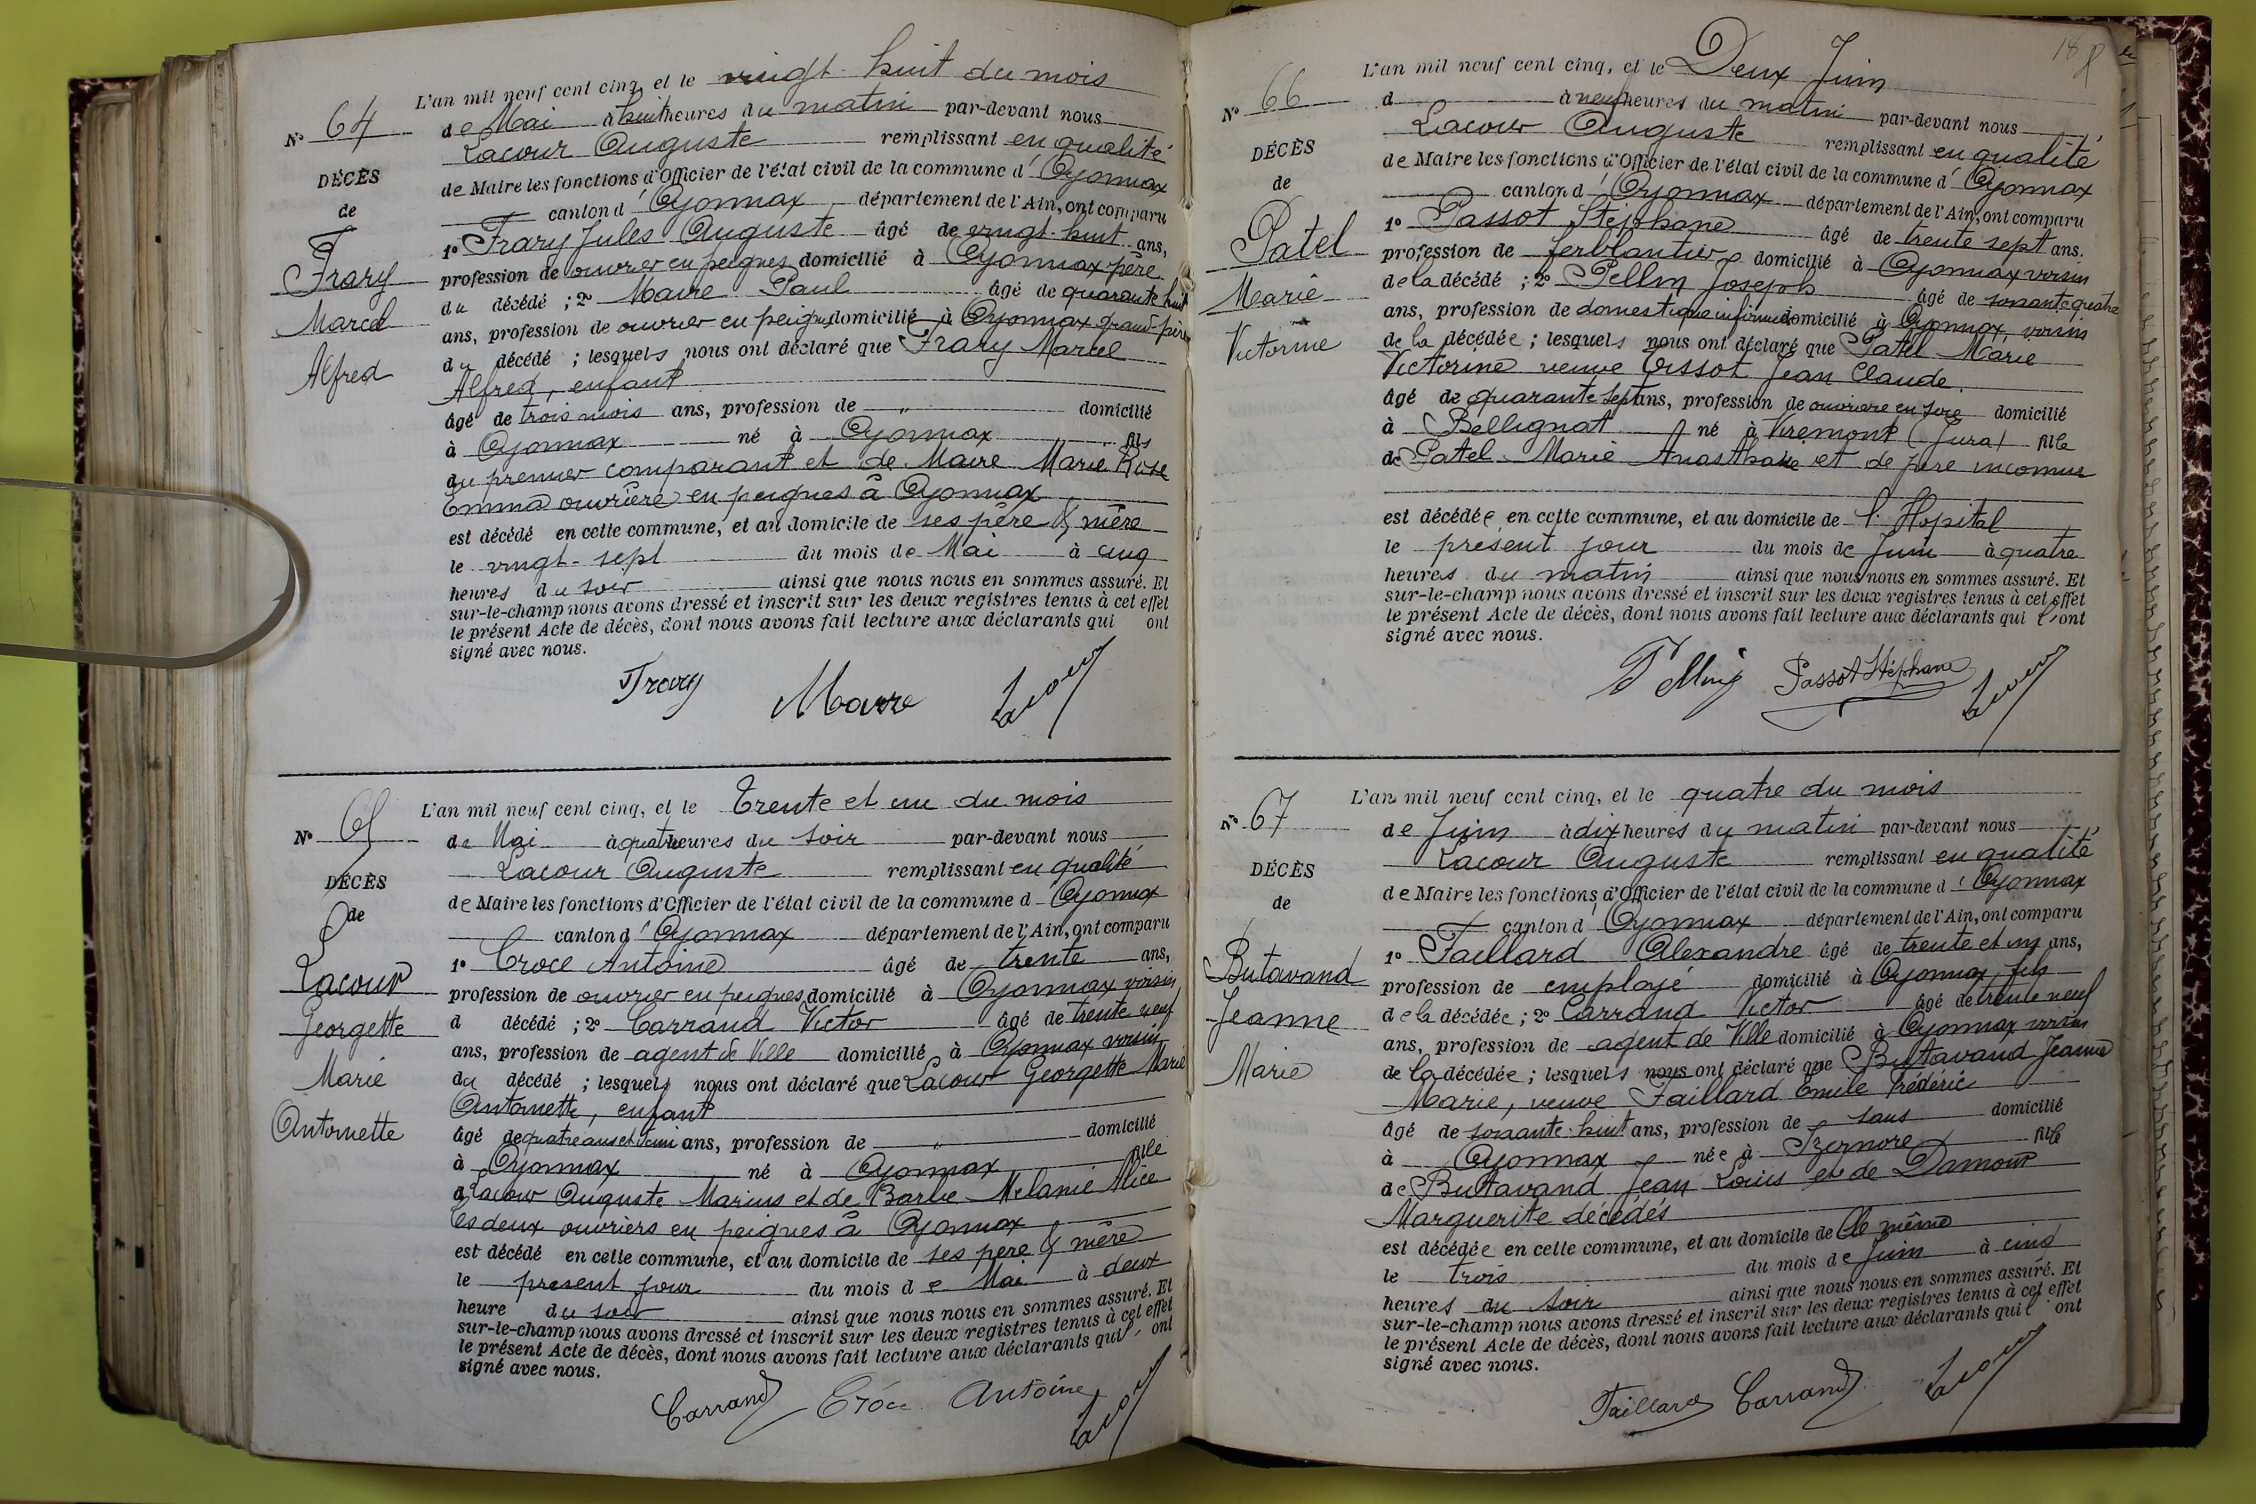 L'an mil neuf cent cinq, et le vingt-huit du mois
N° 64
de Mai à huit heures du matin par-devant nous
Lacour Auguste remplissant en qualité
DÉCÈS
de Maire les fonctions d'Officier de l'état civil de la commune d' Oyonnax
de
canton d' Oyonnax département de l'Ain, ont comparu
Frary
1° Frary Jules Auguste âgé de vingt-huit ans,
profession de ouvrier en peignes domicilié à Oyonnax père
Marcel
du décédé ; 2° Maire Paul âgé de quarante huit
ans, profession de ouvrier en peignes domicilié à Oyonnax grand-père
Alfred
du décédé ; lesquels nous ont déclaré que Frary Marcel
Alfred, enfant
âgé de trois mois ans, profession de " domicilié
à Oyonnax né à Oyonnax fils
du premier comparant et de Maire Marie Rose
Emma ouvrière en peignes à Oyonnax
est décédé en cette commune, et au domicile de ses père & mère
le vingt-sept du mois de Mai à cinq
heures du soir ainsi que nous nous en sommes assuré. Et
sur-le-champ nous avons dressé et inscrit sur les deux registres tenus à cet effet
le présent Acte de décès, dont nous avons fait lecture aux déclarants qui ont
signé avec nous.
Frary Maire Lacour
L'an mil neuf cent cinq, et le Trente et un du mois
N° 65
de Mai à quatre heures du soir par-devant nous
Lacour Auguste remplissant en qualité
DÉCÈS
de Maire les fonctions d'Officier de l'état civil de la commune d' Oyonnax
de
canton d' Oyonnax département de l'Ain, ont comparu
Lacour
1° Croce Antoine âgé de trente ans,
profession de ouvrier en peignes domicilié à Oyonnax voisin
Georgette
d décédé ; 2° Carrand Victor âgé de trente neuf
ans, profession de agent de Ville domicilié à Oyonnax voisin
Marie
du décédé ; lesquels nous ont déclaré que Lacour Georgette Marie
Antoinette
Antoinette, enfant
âgé de quatre ans et demi ans, profession de " domicilié
à Oyonnax né à Oyonnax fille
d Lacour Auguste Marius et de Barbe Mélanie Alice
les deux ouvriers en peignes à Oyonnax
est décédé en cette commune, et au domicile de ses père & mère
le présent jour du mois de Mai à deux
heure du soir ainsi que nous nous en sommes assuré. Et
sur-le-champ nous avons dressé et inscrit sur les deux registres tenus à cet effet
le présent Acte de décès, dont nous avons fait lecture aux déclarants qui l'ont
signé avec nous.
Carrand Croce Antoine Lacour
18
L'an mil neuf cent cinq, et le Deux Juin
N° 66
d à neuf heures du matin par-devant nous
Lacour Auguste remplissant en qualité
DÉCÈS
de Maire les fonctions d'Officier de l'état civil de la commune d' Oyonnax
de
canton d' Oyonnax département de l'Ain, ont comparu
Patel
1° Passot Stéphane âgé de trente sept ans.
profession de ferblantier domicilié à Oyonnax voisin
Marie
de la décédé ; 2° Pelling Joseph âgé de soixante quatre
ans, profession de domestique infirmier domicilié à Oyonnax, voisin
Victorine
de la décédée ; lesquels nous ont déclaré que Patel Marie
Victorine veuve Tissot Jean Claude.
âgé de quarante sept ans, profession de ouvrière en soie domicilié
à Bellignat né à Viremont (Jura) fille
de Patel Marie Anasthasie et de père inconnu
est décédée en cette commune, et au domicile de l'Hopital
le présent jour du mois de Juin à quatre
heures du matin ainsi que nous nous en sommes assuré. Et
sur-le-champ nous avons dressé et inscrit sur les deux registres tenus à cet effet
le présent Acte de décès, dont nous avons fait lecture aux déclarants qui l'ont
signé avec nous.
Pelling Passot Stéphane Lacour
L'an mil neuf cent cinq, et le quatre du mois
N° 67
de Juin à dix heures du matin par-devant nous
Lacour Auguste remplissant en qualité
DÉCÈS
de Maire les fonctions d'Officier de l'état civil de la commune d' Oyonnax
de
canton d' Oyonnax département de l'Ain, ont comparu
Butavand
1° Taillard Alexandre âgé de trente et un ans,
profession de employé domicilié à Oyonnax, fils
Jeanne
de la décédée ; 2° Carrand Victor âgé de trente neuf
ans, profession de agent de Ville domicilié à Oyonnax voisin
Marie
de la décédée ; lesquels nous ont déclaré que Butavand Jeanne
Marie, veuve Taillard Emile Frédéric
âgé de soixante-huit ans, profession de sans domicilié
à Oyonnax née à Izernore fille
de Butavand Jean Louis et de Damour
Marguerite décédés
est décédée en cette commune, et au domicile de Elle même
le trois du mois de Juin à cinq
heures du soir ainsi que nous nous en sommes assuré. Et
sur-le-champ nous avons dressé et inscrit sur les deux registres tenus à cet effet
le présent Acte de décès, dont nous avons fait lecture aux déclarants qui l'ont
signé avec nous.
Taillard Carrand Lacour